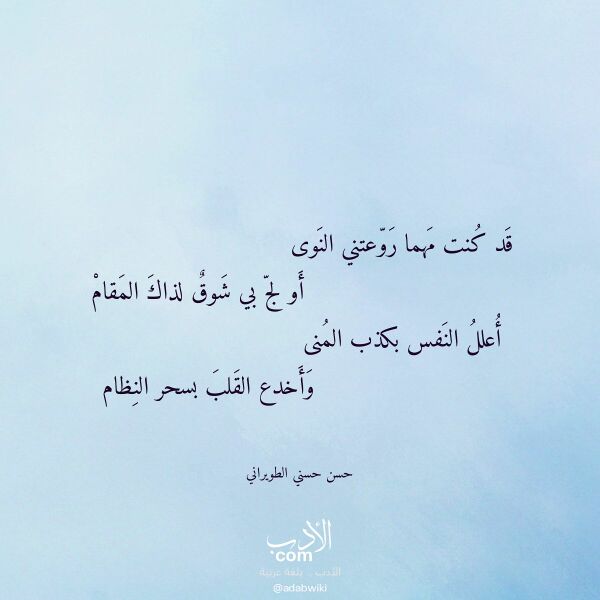 قَد كُنت مَهما رَوّعتني النَوى
أَو لجّ بي شَوقٌ لذاكَ المَقامْ
أُعللُ النَفس بكذب المُنى
وَأَخدع القَلبَ بسحر النِظام
حسن حسني الطويراني
الأدب
com
الأدب .. بلغة عربية
@adabwiki